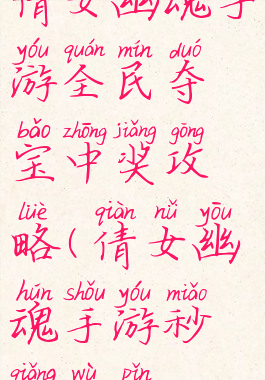 倩女幽魂手
yóu quán mín duó
游全民夺
bǎo zhōng jiǎng gōng
宝中奖攻
lüè qiàn nǚ yōu
略(倩女幽
hún shǒu yóu miǎo
魂手游秒
qiǎng wù pǐn